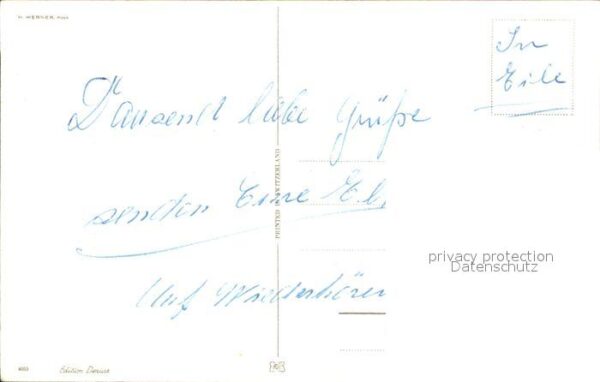 H. WERNER, PINX
In
Eile
Tausend liebe Grüße
senden Eure El.
Auf Wiederhören
PRINTED IN SWITZERLAND
privacy protection
Datenschutz
Edition